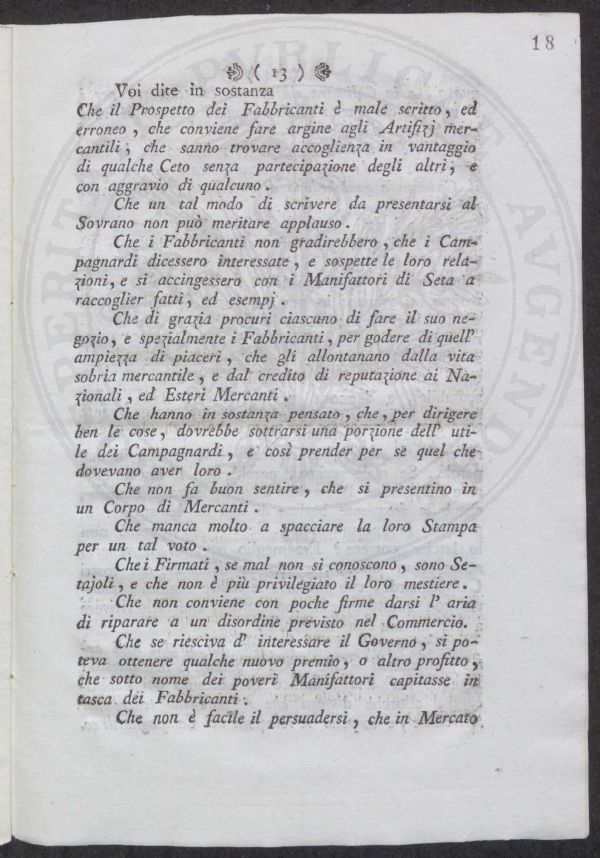 18
( 13 )
Voi dite in sostanza
Che il Prospetto dei Fabbricanti è male scritto, ed
erroneo, che conviene fare argine agli Artifizj mer-
cantili, che sanno trovare accoglienza in vantaggio
di qualche Ceto senza partecipazione degli altri, e
con aggravio di qualcuno.
Che un tal modo di scrivere da presentarsi al
Sovrano non può meritare applauso.
Che i Fabbricanti non gradirebbero, che i Cam-
pagnardi dicessero interessate, e sospette le loro rela-
zioni, e si accingessero con i Manifattori di Seta a
raccoglier fatti, ed esempj.
Che di grazia procuri ciascuno di fare il suo ne-
gozio, e spezialmente i Fabbricanti, per godere di quell'
ampiezza di piaceri, che gli allontanano dalla vita
sobria mercantile, e dal credito di reputazione ai Na-
zionali, ed Esteri Mercanti.
Che hanno in sostanza pensato, che, per dirigere
ben le cose, dovrebbe sottrarsi una porzione dell' uti-
le dei Campagnardi, e così prender per se quel che
dovevano aver loro.
Che non fa buon sentire, che si presentino in
un Corpo di Mercanti.
Che manca molto a spacciare la loro Stampa
per un tal voto.
Che i Firmati, se mal non si conoscono, sono Se-
tajoli, e che non è più privilegiato il loro mestiere.
Che non conviene con poche firme darsi l' aria
di riparare a un disordine previsto nel Commercio.
Che se riesciva d' interessare il Governo, si po-
teva ottenere qualche nuovo premio, o altro profitto,
che sotto nome dei poveri Manifattori capitasse in
tasca dei Fabbricanti.
Che non è facile il persuadersi, che in Mercato